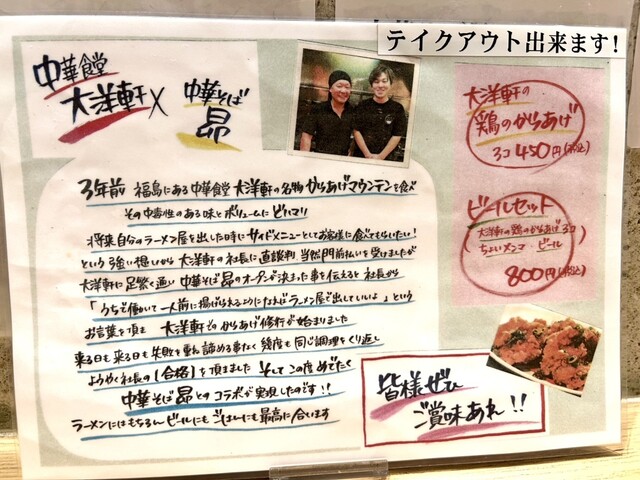 テイクアウト出来ます!
中華食堂
大洋軒 × 中華そば
昴
3年前 福島にある中華食堂 大洋軒の名物からあげマウンテンを食べ
その中毒性のある味とボリュームにどハマリ
将来自分のラーメン屋を出した時にサイドメニューとしてお客様に食べてもらいたい!
という強い想いから大洋軒の社長に直談判 当然門前払いを受けましたが
大洋軒に足繁く通い 中華そば昴のオープンが決まった事を伝えると社長から
「うちで働いて一人前に揚げられるようになればラーメン屋で出していいよ」という
お言葉を頂き 大洋軒でのからあげ修行が始まりました
来る日も来る日も失敗を重ね諦める事なく幾度も同じ調理をくり返し
ようやく社長の【合格】を頂ました そしてこの度めでたく
中華そば昴とのコラボが実現したのです!!
ラーメンにはもちろんビールにもごはんにも最高に合います
大洋軒の
鶏のからあげ
3コ 450円(税込)
ビールセット
(大洋軒の鶏のからあげ 3コ
ちょいメンマ ビール)
800円(税込)
皆様ぜひ
ご賞味あれ!!